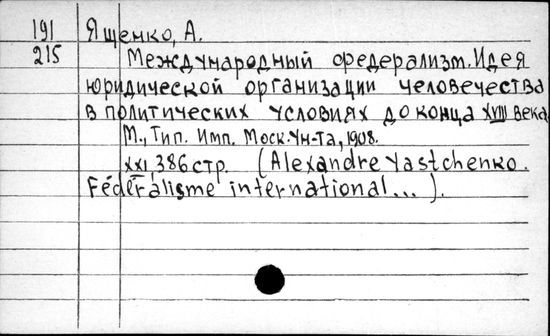 191 Ященко, А.
215 Международный федерализм. Идея
юридической организации человечества
в политических условиях до конца XVIII века
М., Тип. Имп. Моск. Ун-та, 1908.
XXI, 386 стр. (Alexandre Yastchenko.
Fédéralisme international...).